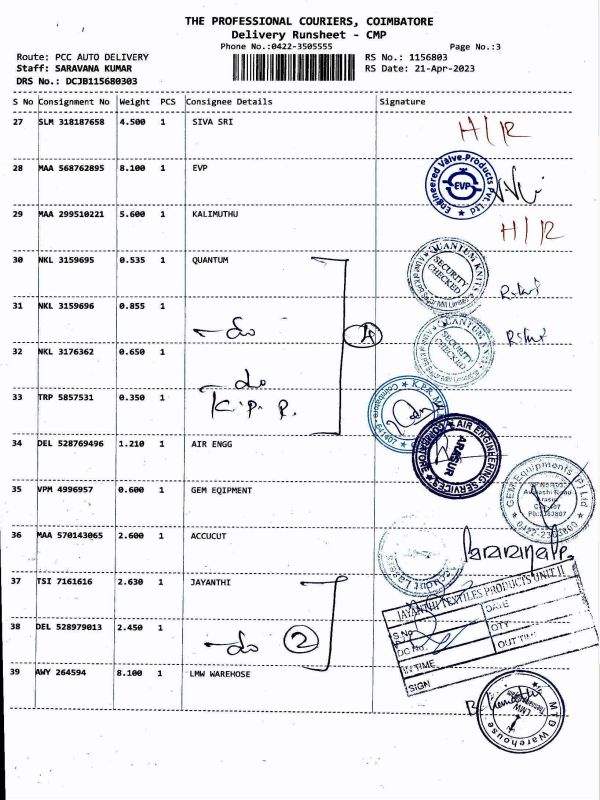 THE PROFESSIONAL COURIERS, COIMBATORE
Delivery Runsheet - CMP
Phone No.:0422-3505555 Page No.:3
Route: PCC AUTO DELIVERY RS No.: 1156803
Staff: SARAVANA KUMAR RS Date: 21-Apr-2023
DRS No.: DCJB115680303
S No Consignment No Weight PCS Consignee Details Signature
27 SLM 318187658 4.500 1 SIVA SRI H/R
28 MAA 568762895 8.100 1 EVP
Engineered Valve Products Pvt. Ltd
EVP
29 MAA 299510221 5.600 1 KALIMUTHU H/R
30 NKL 3159695 0.535 1 QUANTUM
QUANTUM KNITS
SECURITY CHECKED
31 NKL 3159696 0.855 1 do 4
QUANTUM KNITS
SECURITY CHECKED
32 NKL 3176362 0.650 1 do
33 TRP 5857531 0.350 1 K.P.R.
Coimbatore 641407
34 DEL 528769496 1.210 1 AIR ENGG
AIR ENGINEERING SERVICES
COIMBATORE
35 VPM 4996957 0.600 1 GEM EQIPMENT
GEM Equipments (P) Ltd
36 MAA 570143065 2.600 1 ACCUCUT
37 TSI 7161616 2.630 1 JAYANTHI
JAYANTHI TEXTILES PRODUCTS UNIT II
S.No DATE
DC No. QTY
IN TIME OUT TIME
SIGN
38 DEL 528979013 2.450 1 do 2
39 AWY 264594 8.100 1 LMW WAREHOSE
LMW
MTD Warehouse